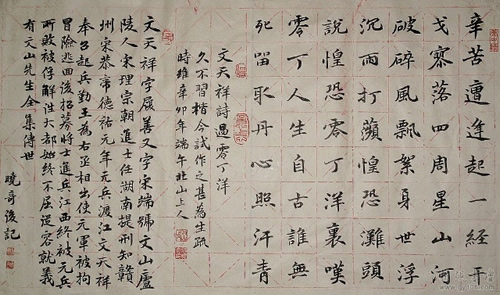 辛苦遭逢起一经干
戈寥落四周星山河
破碎風飄絮身世浮
沉雨打蘋惶恐灘頭
説惶恐零丁洋裏嘆
零丁人生自古誰無
死留取丹心照汗青
文天祥詩過零丁洋
久不習楷今試作之甚為生疏
時維辛卯年端午北山上人
文天祥字履善又字宋端號文山廬
陵人宋理宗朝進士任湖南提刑知贛
州宋恭帝德祐元年元兵渡江文天祥
奉召起兵勤王為右丞相出使元軍被拘
冒險逃回後招募將士進兵江西終被元兵
所敗被俘解往大都始終不屈從容就義
有文山先生全集傳世
曉哥後記